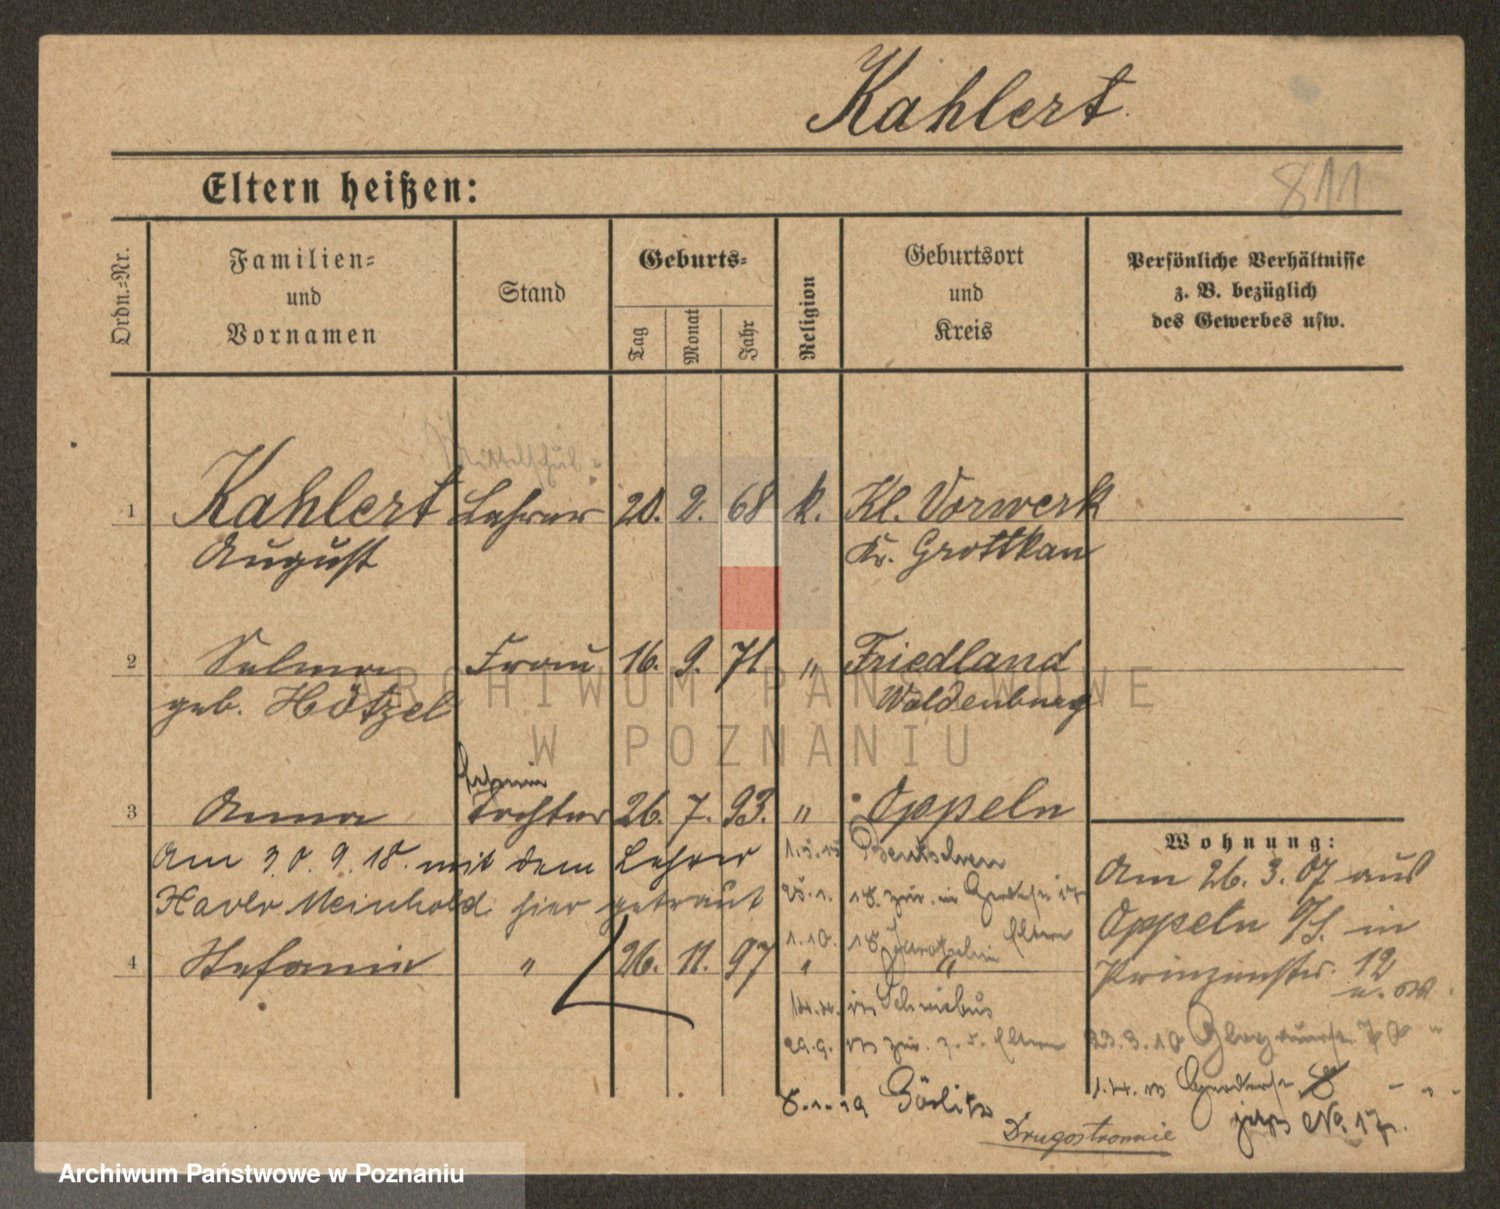 Kahlert.
811
Eltern heißen:
Ordn.-Nr.
Familien- und Vornamen
Stand
Geburts-
Tag
Monat
Jahr
Religion
Geburtsort und Kreis
Persönliche Verhältnisse z. B. bezüglich des Gewerbes usw.
Mittelschul-
1 Kahlert Lehrer 20. 2. 68 k. Kl. Vorwerk
August Kr. Grottkau
2 Selma Frau 16. 9. 71 " Friedland
geb. Hötzel Waldenburg
3 Anna Tochter 26. 7. 93. " Oppeln
Am 30.9.18. mit dem Lehrer
Meinhold hier getraut
4 Stefanie " 26. 11. 97 " "
Bentschen
Eltern
in Schwiebus
29.9. zur. Eltern
8.1.19 Görlitz
Wohnung:
Am 26.3.07 aus
Oppeln O/S. in
Prinzenstr. 12
23.3.10
jetzt No. 17.
Drugostronnie
ARCHIWUM PAŃSTWOWE
W POZNANIU
Archiwum Państwowe w Poznaniu